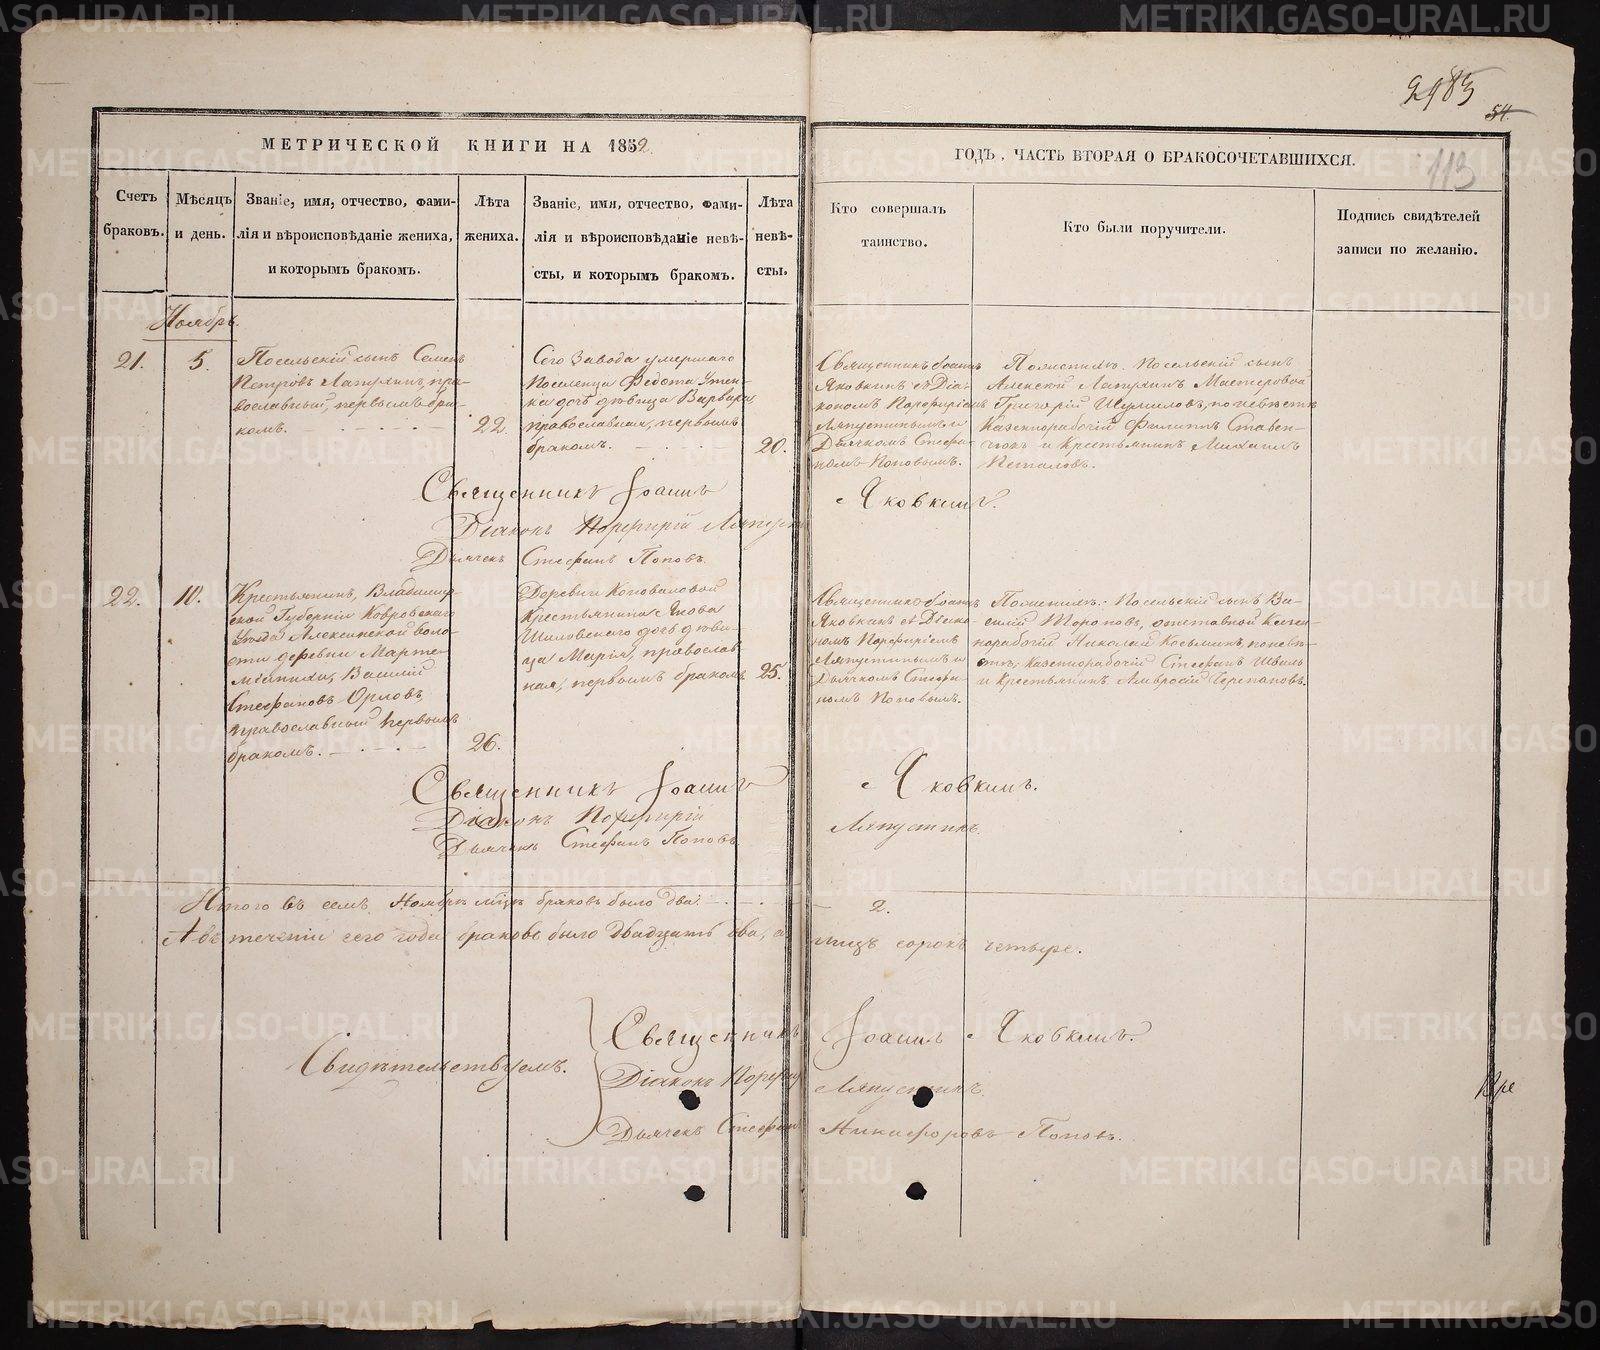 2983
54.
113
МЕТРИЧЕСКОЙ КНИГИ НА 1852
ГОДЪ, ЧАСТЬ ВТОРАЯ О БРАКОСОЧЕТАВШИХСЯ.
Счетъ
браковъ.
Мѣсяцъ
и день.
Званіе, имя, отчество, фами-
лія и вѣроисповѣданіе жениха,
и которымъ бракомъ.
Лѣта
жениха.
Званіе, имя, отчество, фами-
лія и вѣроисповѣданіе невѣ-
сты, и которымъ бракомъ.
Лѣта
невѣ-
сты.
Кто совершалъ
таинство.
Кто были поручители.
Подпись свидѣтелей
записи по желанію.
Ноябрь.
21.
5.
Посельскій сынъ Семенъ
Петровъ Латухинъ, пра-
вославный, первымъ бра-
комъ.
22.
Сего Завода умершаго
Поселенца Федота
дочь дѣвица Варвара
православная, первымъ
бракомъ.
20.
Священникъ Іоаннъ
Яковкинъ съ Діа-
кономъ Порфиріемъ
Ляпустинымъ и
Дьячкомъ Стефа-
номъ Поповымъ.
По женихѣ: Посельскій сынъ
Алексей Латухинъ Мастеровой
Григорій Шумиловъ, по невѣстѣ
Казеннорабочій Филиппъ Ставен-
и Крестьянинъ Михаилъ
Священникъ Іоаннъ Яковкинъ.
Діаконъ Порфирій Ляпустинъ
Дьячекъ Стефанъ Поповъ.
22.
10.
Крестьянинъ, Владимір-
ской Губерніи Ковровскаго
Уѣзда Алексинской воло-
сти деревни Марте-
Василій
Стефановъ Орловъ,
православный первымъ
бракомъ.
26.
Деревни Коноваловой
Крестьянина Якова
Шиловскаго дочь дѣви-
ца Марія, православ-
ная, первымъ бракомъ
25.
Священникъ Іоаннъ
Яковкинъ съ Діако-
номъ Порфиріемъ
Ляпустинымъ и
Дьячкомъ Стефа-
номъ Поповымъ.
По женихѣ: Посельскій сынъ Ва-
силій Тороповъ, отставной казен-
норабочій Николай Косьминъ, по невѣ-
стѣ: казеннорабочій Стефанъ
и Крестьянинъ Амвросій Черепановъ.
Священникъ Іоаннъ Яковкинъ.
Діаконъ Порфирій Ляпустинъ.
Дьячекъ Стефанъ Поповъ
Итого въ семъ Ноябрѣ мцѣ браковъ было два. 2.
А въ теченіи сего года браковъ было двадцать два, а лицъ сорокъ четыре.
Свидѣтельствуемъ.
Священникъ Іоаннъ Яковкинъ.
Діаконъ Порфирій Ляпустинъ.
Дьячекъ Стефанъ Никифоровъ Поповъ.
METRIKI.GASO-URAL.RU